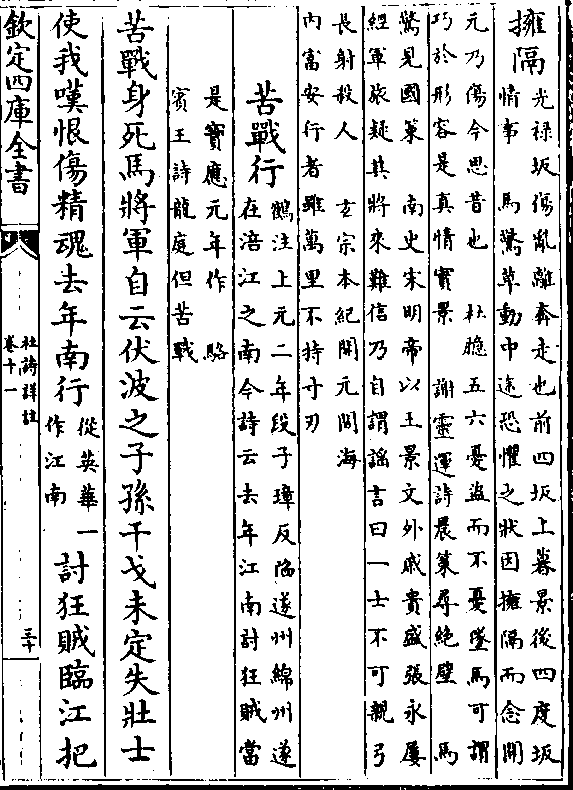 擁隔光禄坂傷亂離奔走也前四坂上暮景後四度坂
情事 馬驚草動中途恐懼之狀因擁隔而念開
元乃傷今思昔也 杜臆五六憂盗而不憂墜馬可謂
巧於形容是真情實景 謝靈運詩晨策尋絶壁 馬
驚見國策 南史宋明帝以王景文外戚貴盛張永屢
經軍旅疑其將來難信乃自謂謡言曰一士不可親弓
長射殺人 玄宗本紀開元間海
内富安行者雖萬里不持寸刃
苦戰行鶴注上元二年段子璋反陷遂州綿州遂
在涪江之南今詩云去年江南討狂賊當
是寶應元年作 駱
賓王詩龍庭但苦戰
苦戰身死馬將軍自云伏波之子孫干戈未定失壯士
使我嘆恨傷精魂去年南行從英華一
作江南
討狂賊臨江把
欽定四庫全書
杜詩詳註
卷十一
三十